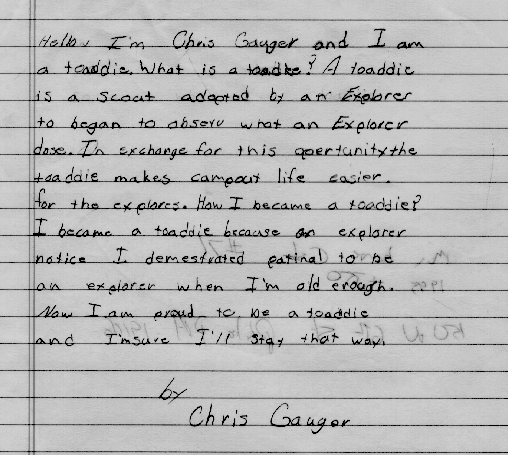 Hello, I'm Chris Gauger and I am
a toaddie. What is a toaddie? A toaddie
is a scout adopted by an Explorer
to began to observe what an Explorer
dose. In exchange for this opertunity the
toaddie makes campout life easier.
for the explores. How I became a toaddie?
I became a toaddie because an explorer
notice I demestrated patinal to be
an explorer when I'm old enough.
Now I am proud to be a toaddie
and I'm sure I'll stay that way.
by
Chris Gauger